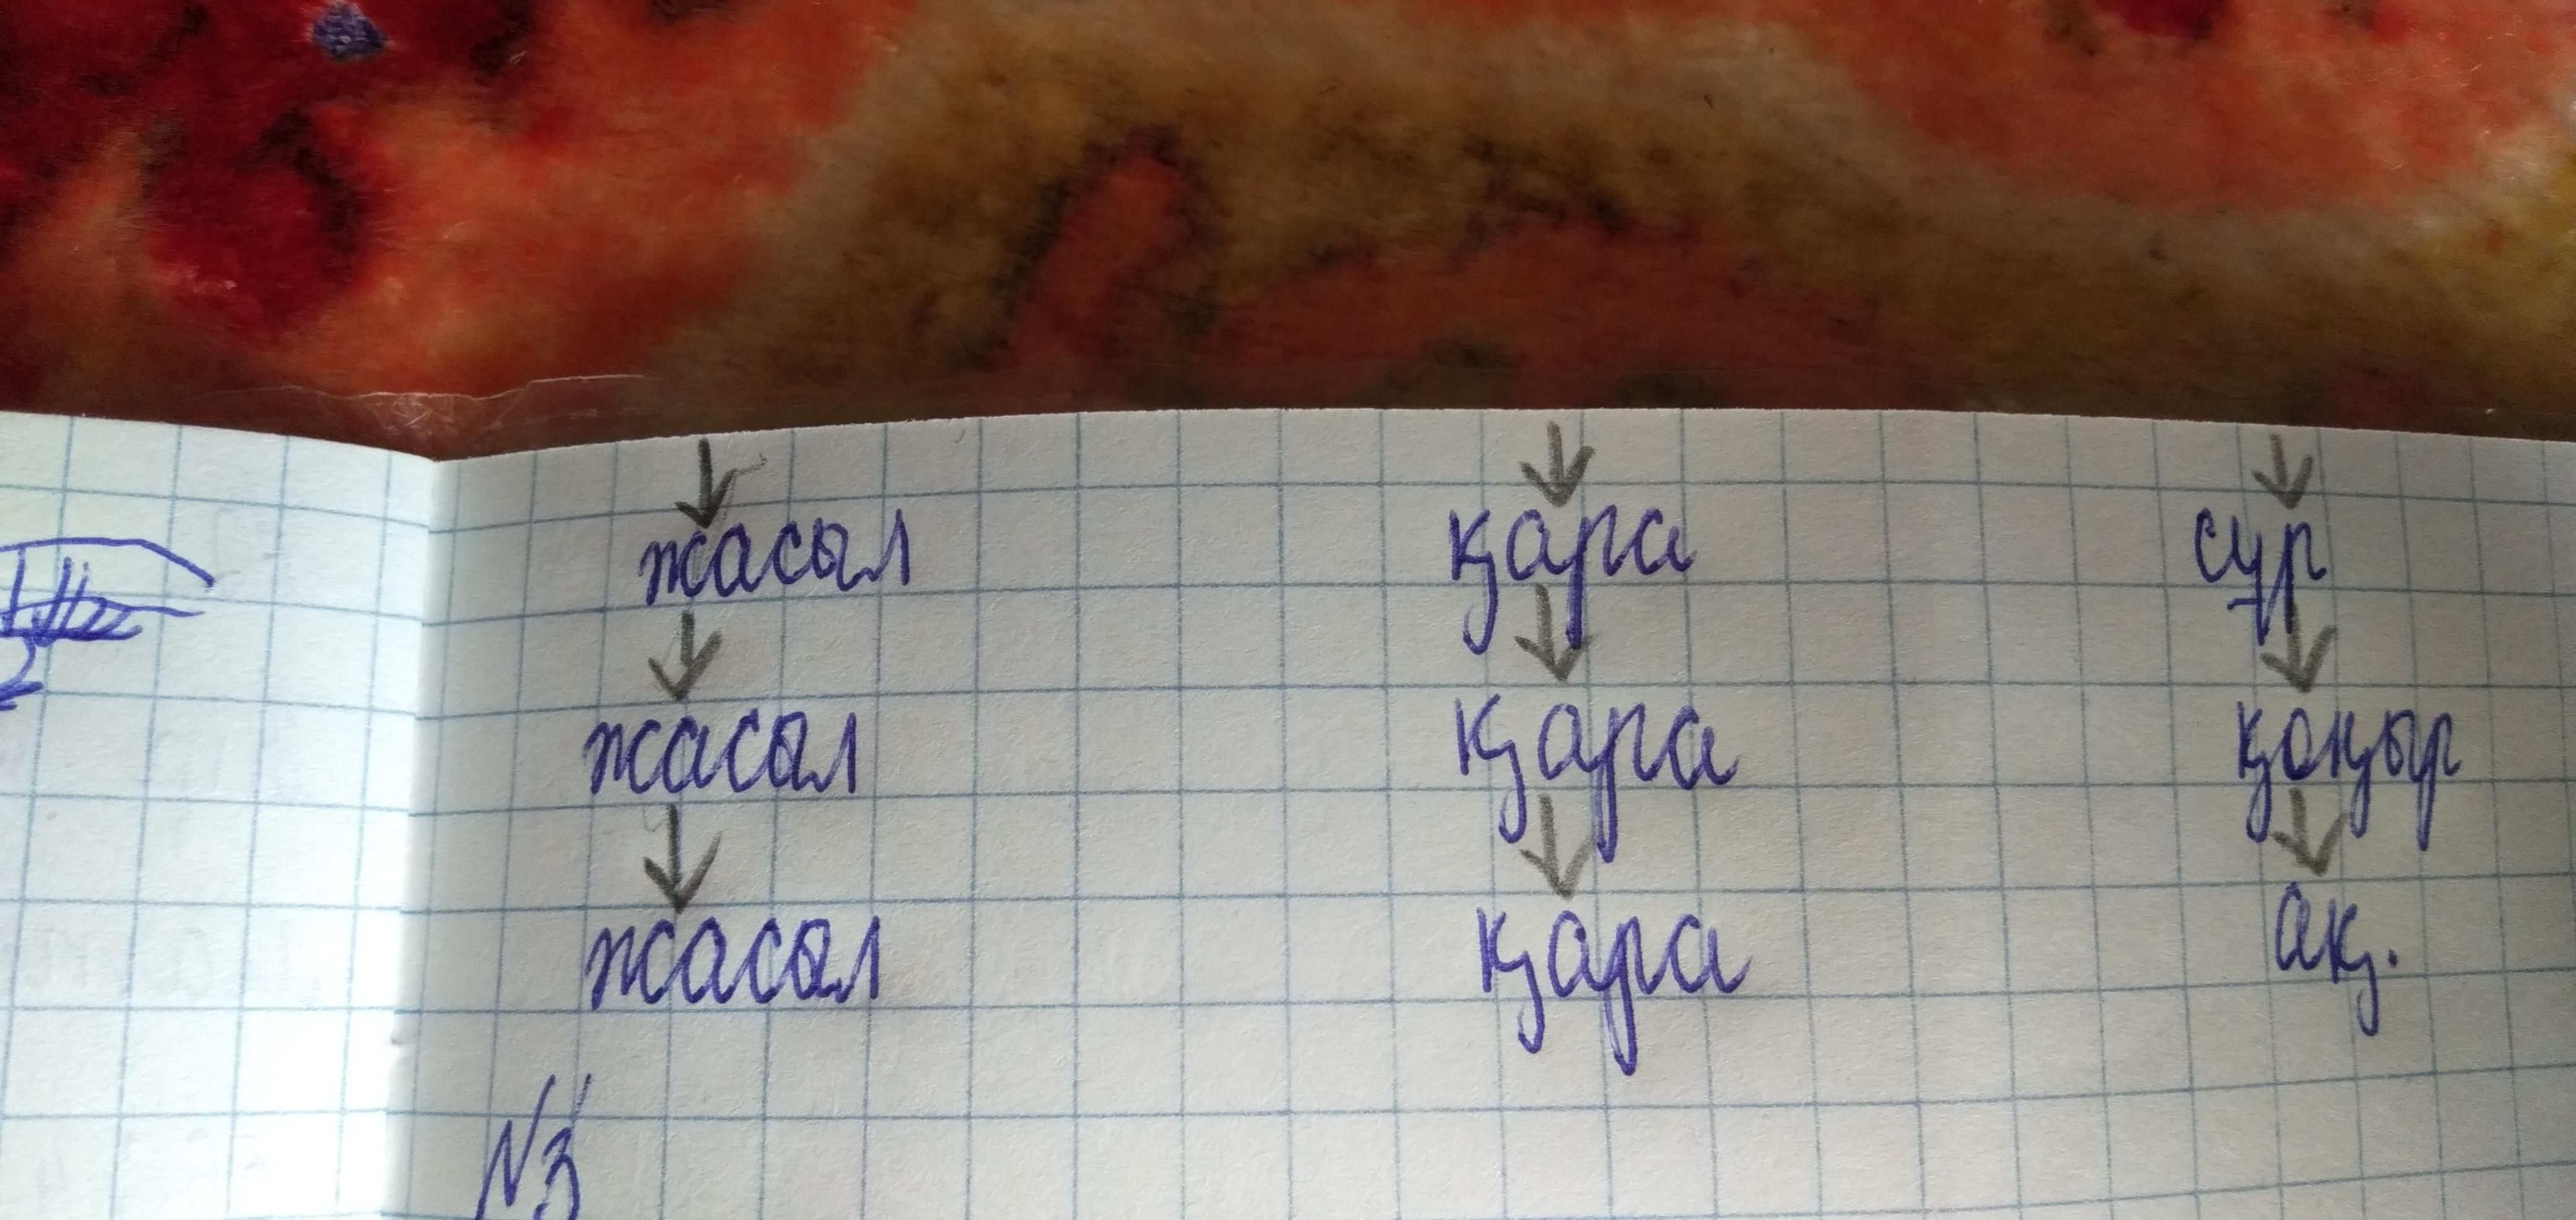 жасыл қара сұр
жасыл қара қоқыр
жасыл қара ақ.
№3